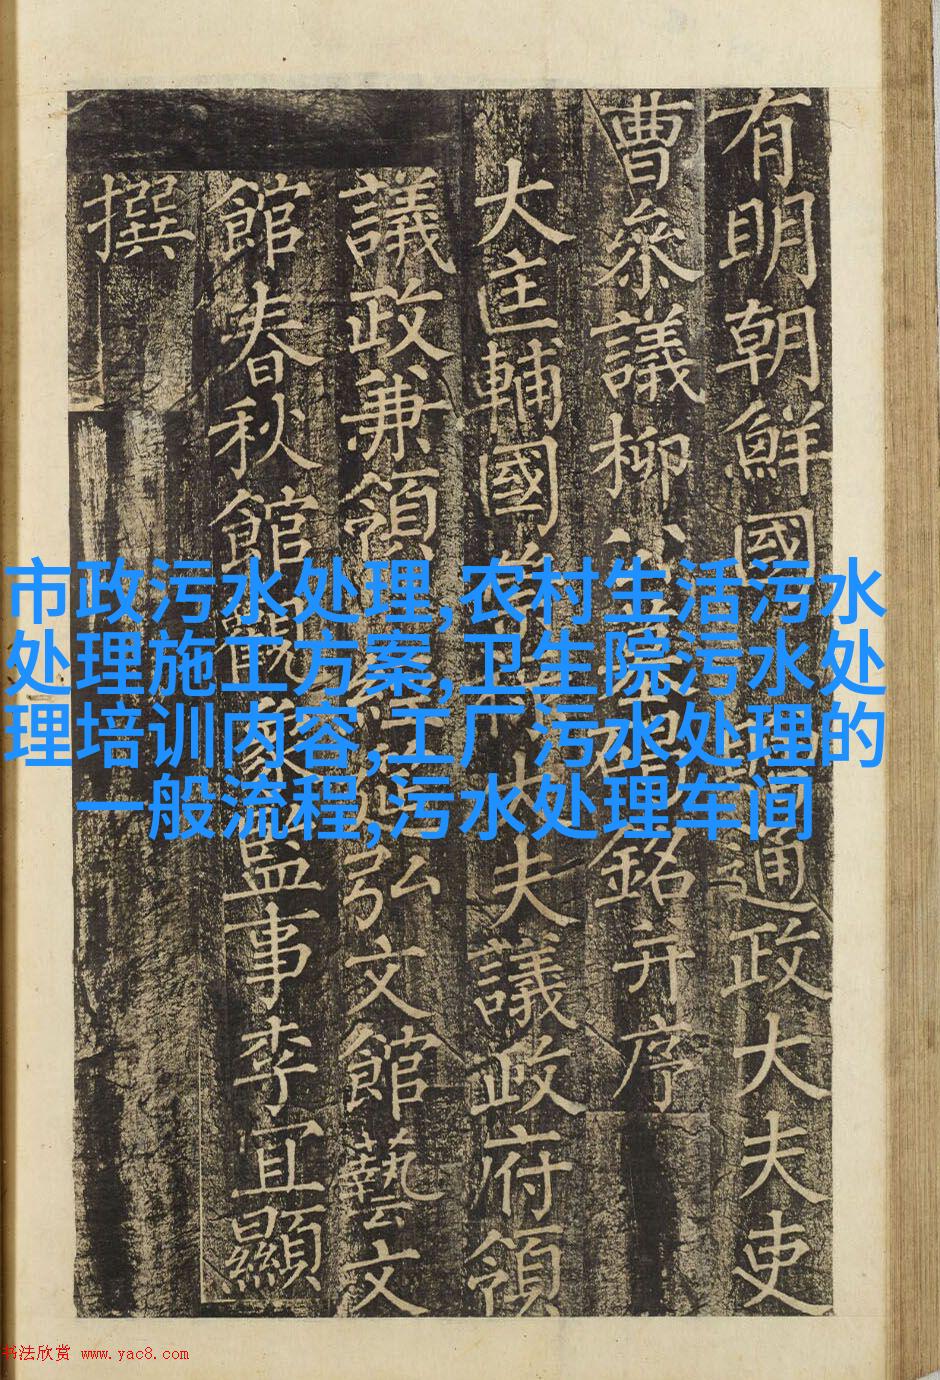 有明朝鮮國通政大夫吏
曹叅議柳公銘并序
大匡輔國大夫議政府領
議政兼領經筵弘文館藝文
館春秋館觀象監事李宜顯
撰
市政污水处理,农村生活污水
处理施工方案,卫生院污水处
理培训内容,工厂污水处理的
一般流程,污水处理车间
书法欣赏 www.yac8.com